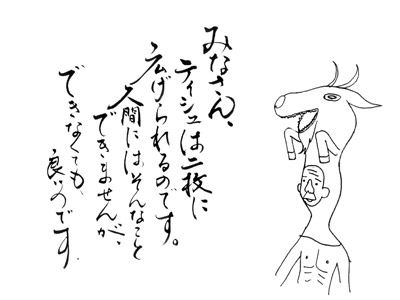 みなさん、
ティシュは二枚に
広げられるのです。
人間にはそんなこと
できませんが、
できなくても、
良いのです